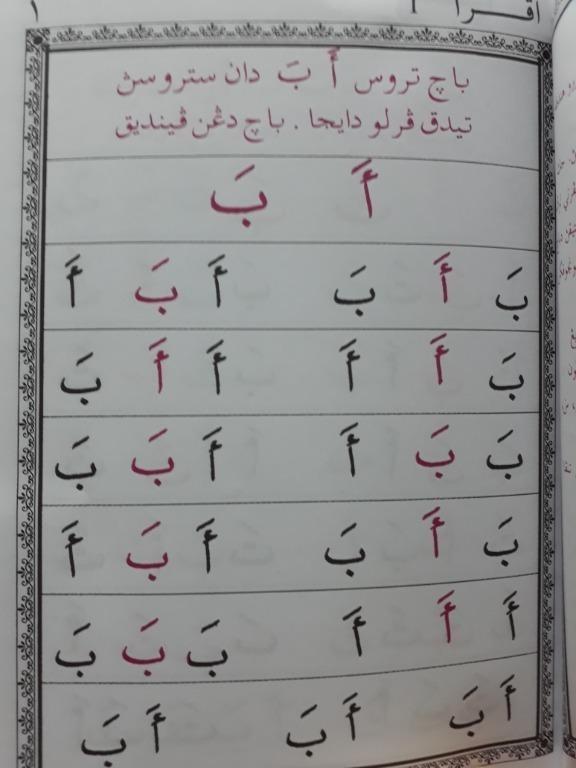 اقرأ ١ ١
باچ تروس أَ بَ دان ستروسڽ
تيدق ڤرلو دايجا . باچ دڠن ڤينديق
أَ بَ
بَ أَ بَ أَ بَ أَ
بَ أَ أَ أَ أَ بَ
بَ بَ أَ أَ بَ بَ
بَ أَ بَ أَ بَ أَ
أَ أَ أَ بَ بَ بَ
أَ بَ أَ بَ أَ بَ